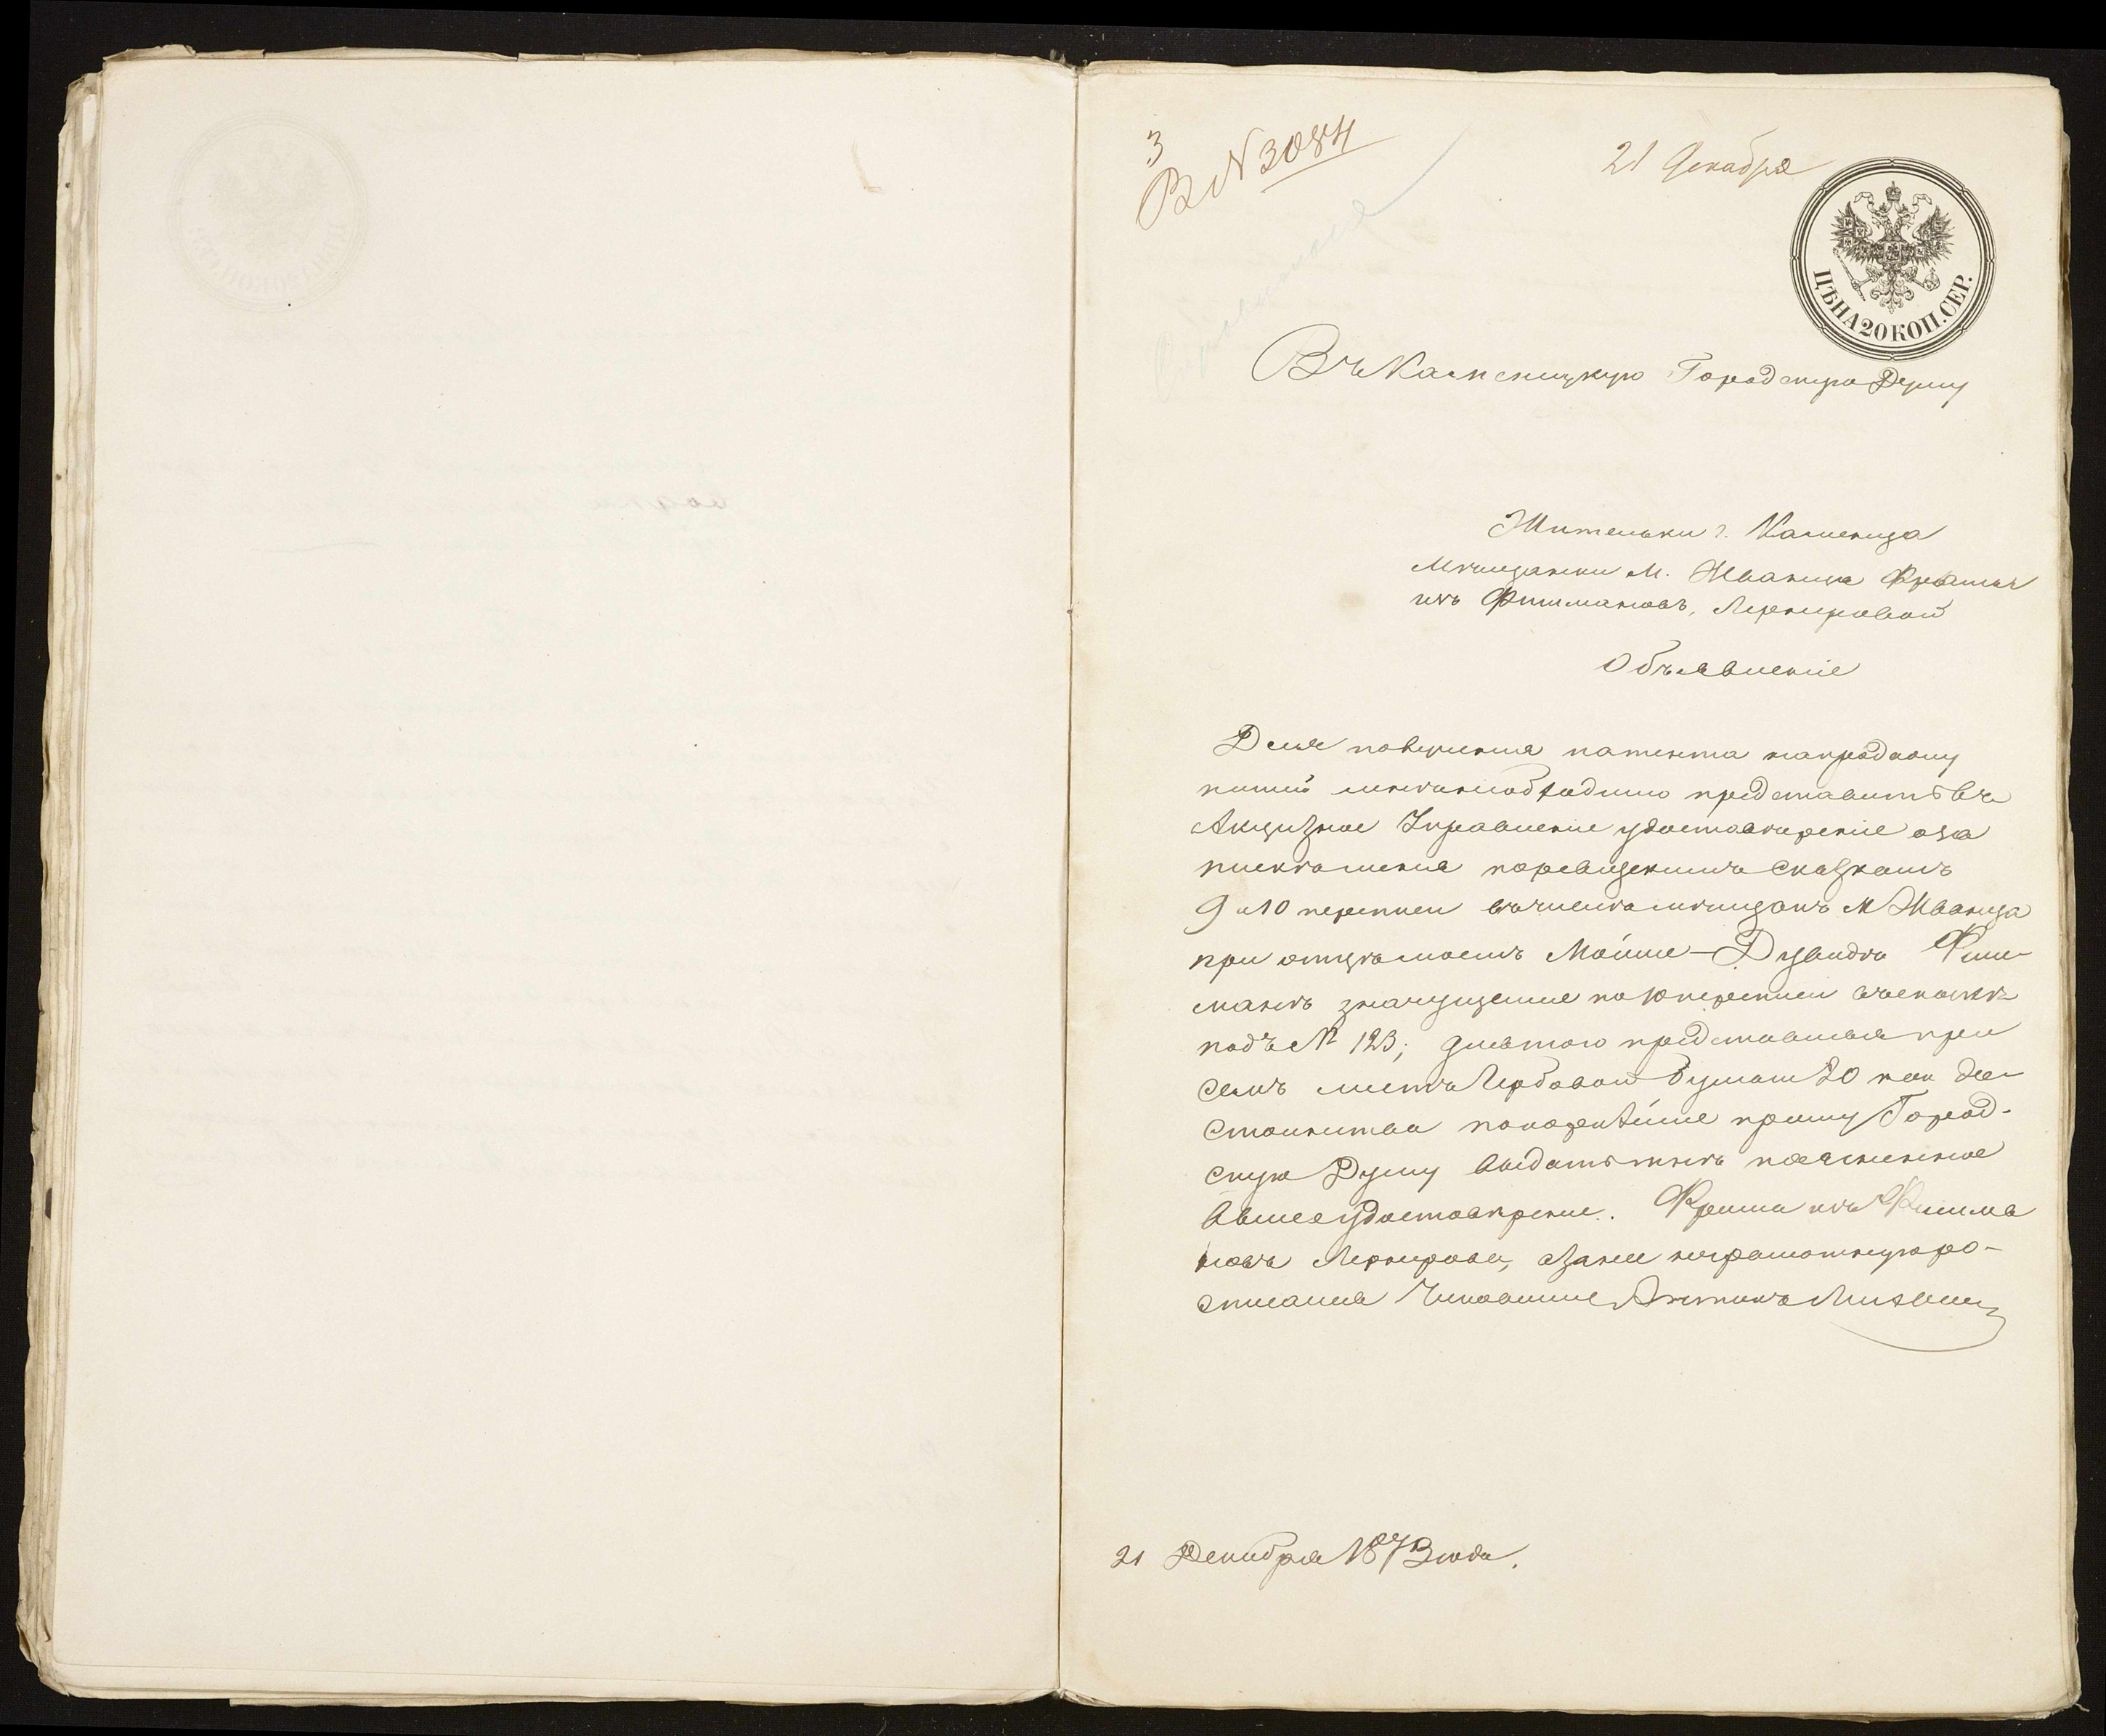 3
В № 3084
21 Декабря
ЦѢНА 20 КОП. СЕР.
Въ Каменецкую Городскую Думу
Жительки г. Каменца
мѣщанки м. Жванца
изъ Фишмановъ, Лернеровой
Объявленіе
Для полученія патента на продажу
питій мнѣ необходимо представить въ
Акцизное Управленіе удостовѣреніе о за
писки меня по ревизскимъ сказкамъ
9 и 10 переписи въ числѣ мѣщанъ м Жванца
при отцѣ моемъ Мойше-Дувидѣ Фиш-
манѣ значущемся по 10 переписи
подъ № 123; для того представляя при
семъ листъ гербовой бумаги 20 коп до-
стоинства покорнѣйше прошу Город-
скую Думу выдать мнѣ поясненное
выше удостовѣреніе. изъ Фишма
новъ Лернерова, а за нее неграмотную ро-
списался Чиновникъ Антонъ
21 Декабря 1873 года.